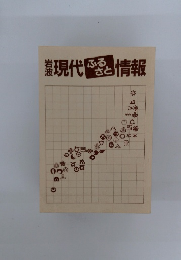 岩波 現代 ふるさと 情報